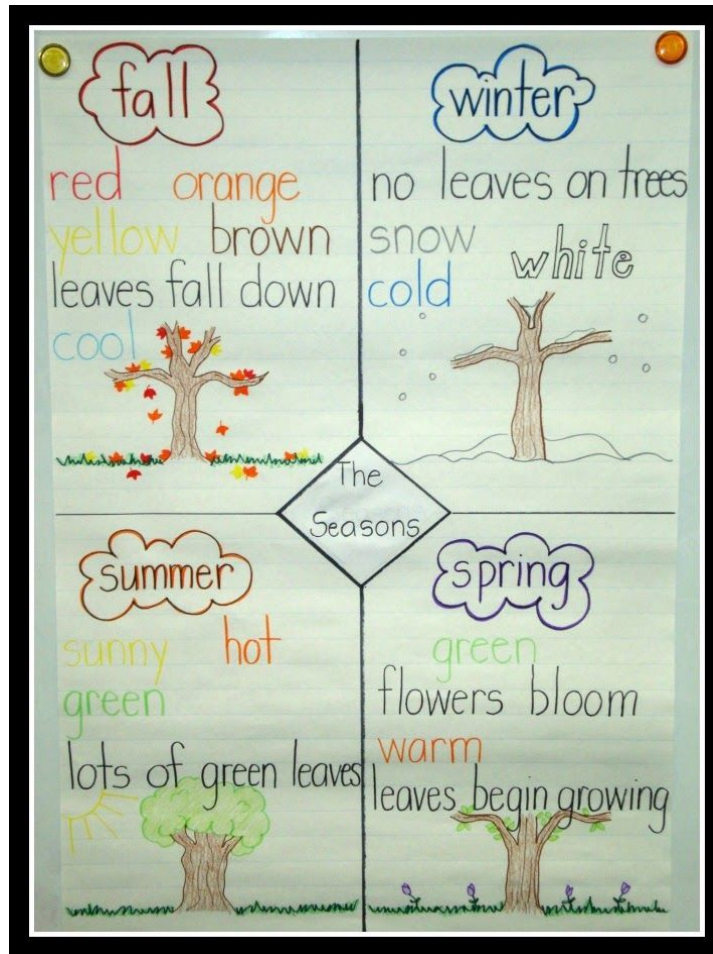 fall
red orange
yellow brown
leaves fall down
cool
winter
no leaves on trees
snow white
cold
The
Seasons
summer
sunny hot
green
lots of green leaves
spring
green
flowers bloom
warm
leaves begin growing